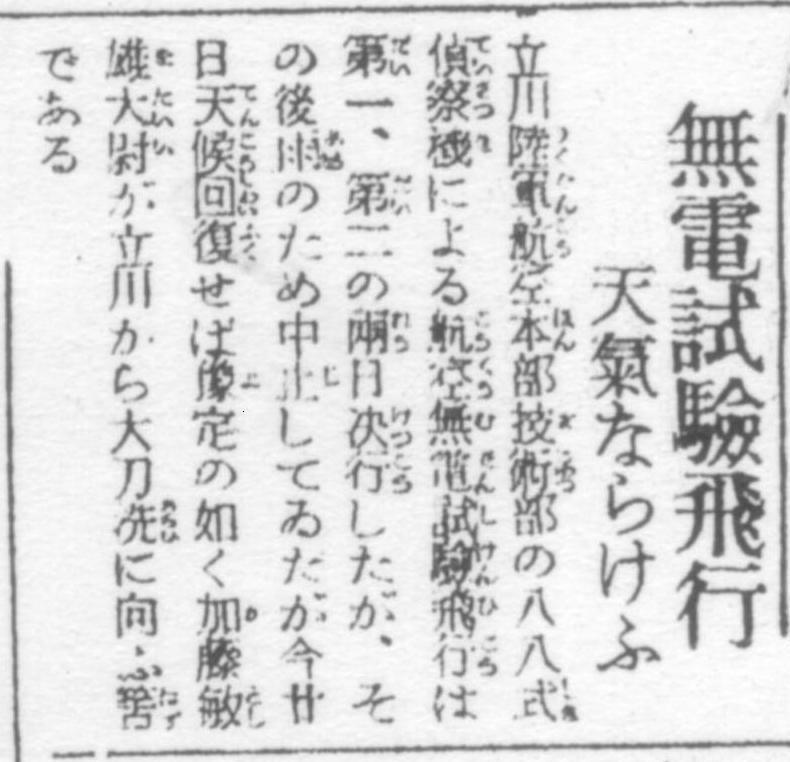 無電試驗飛行
天氣ならけふ
立川陸軍航空本部技術部の八八式
偵察機による航空無電試驗飛行は
第一、第二の兩日决行したが、そ
の後雨のため中止してゐたが今廿
日天候回復せば豫定の如く加藤敏
雄大尉が立川から大刀洗に向ふ筈
である